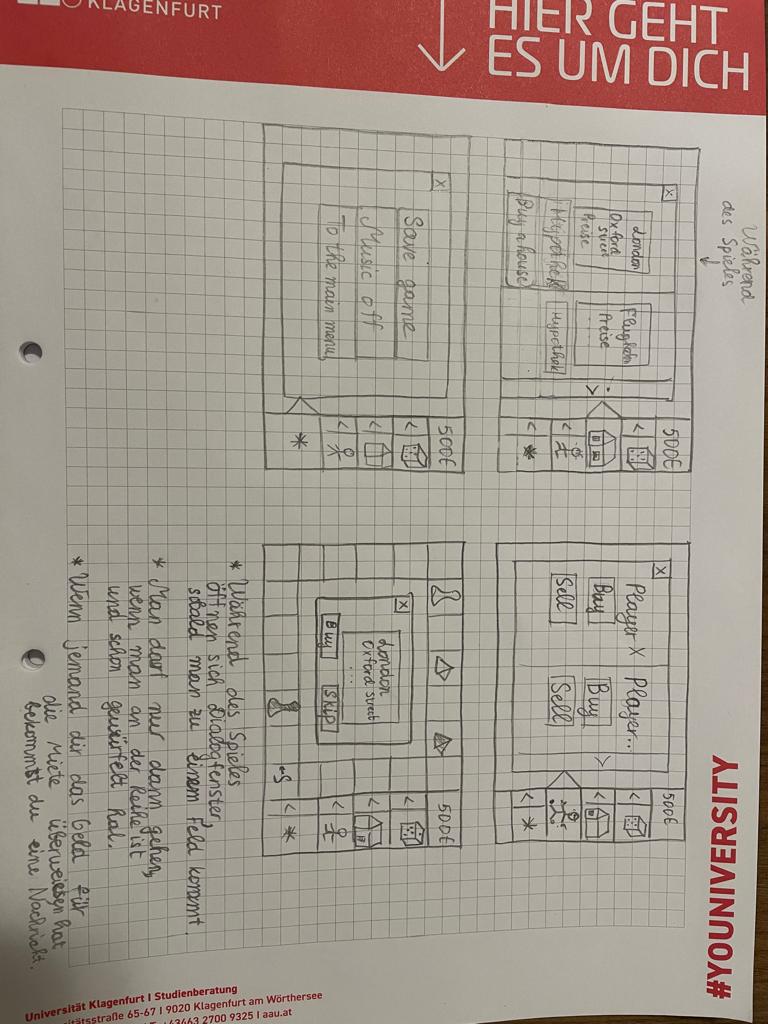 KLAGENFURT
HIER GEHT
ES UM DICH
Während
des Spieles
500€
X
London
Oxford
street
Preise
Hypothek
Buy a house
Flughafen
Preise
Hypothek
500€
X
Player X
Buy
Sell
Player...
Buy
Sell
500€
X
Save game
Music off
To the main menu
500€
X
London
Oxford street
...
Buy
Skip
* Während des Spieles
öffnen sich Dialogfenster,
sobald man zu einem Feld kommt.
* Man darf nur dann gehen,
wenn man an der Reihe ist
und schon gewürfelt hat.
* Wenn jemand dir das Geld für
die Miete überwiesen hat
bekommst du eine Nachricht.
#YOUNIVERSITY
Universität Klagenfurt I Studienberatung
itätsstraße 65-67 I 9020 Klagenfurt am Wörthersee
2700 9325 I aau.at